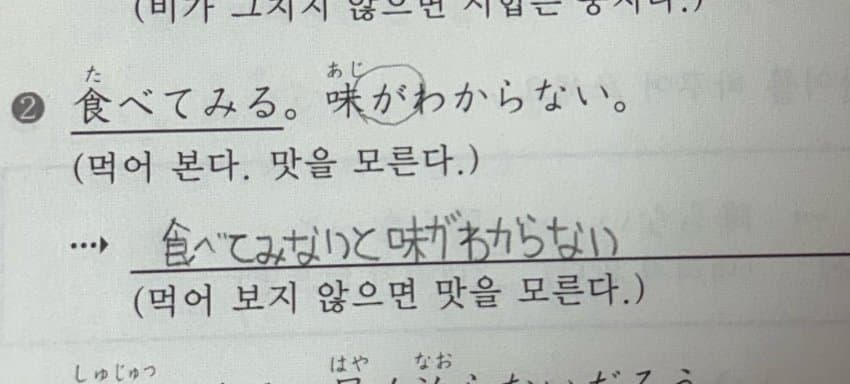 (비가 그치지 않으면 시합은 중지다.)
❷ 食べてみる。味がわからない。
た あじ
(먹어 본다. 맛을 모른다.)
…▶ 食べてみないと味がわからない
(먹어 보지 않으면 맛을 모른다.)
しゅじゅつ はや なお